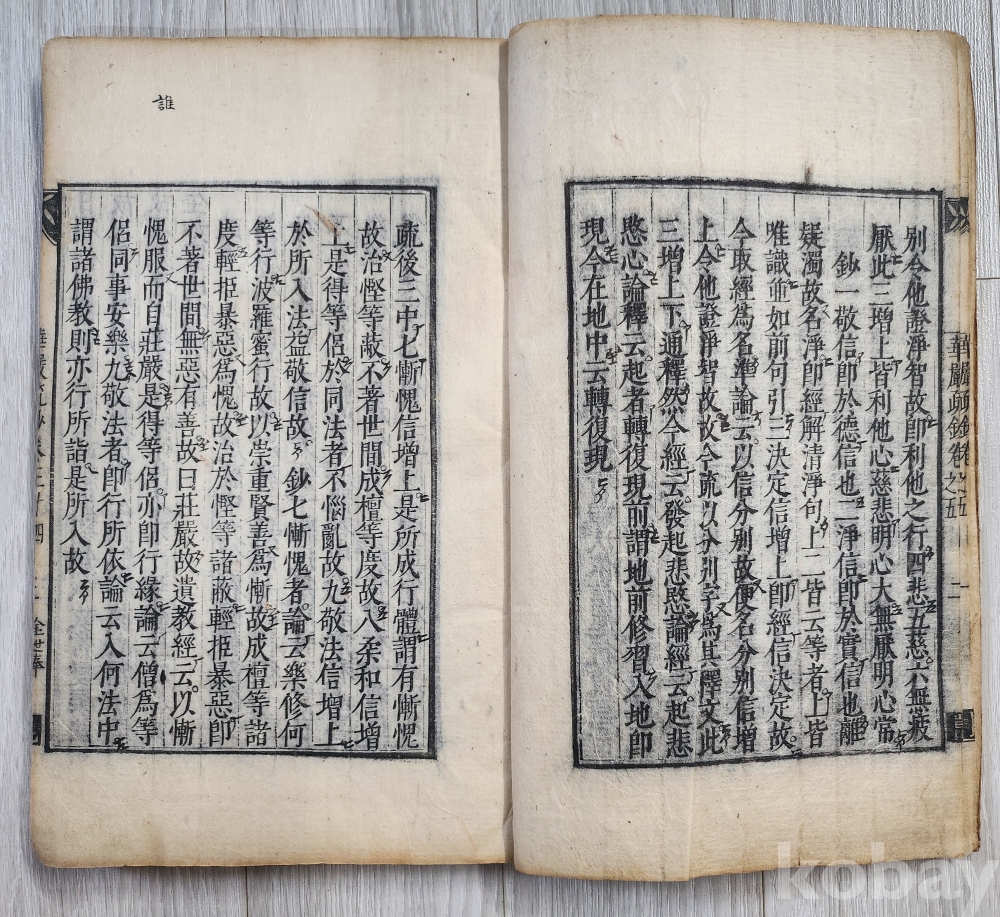 別令他證淨智故卽利他之行四悲五慈六無疲
厭此三增上皆利他心慈悲明心大無厭明心常
鈔一敬信卽於德信也二淨信卽於實信也離
疑濁故名淨卽經解清淨句上二皆云等者上皆
唯識並如前句引三決定信增上卽經信決定故
今取經爲名準論云以信分別故便名分別信增
上令他證淨智故故今疏以分別字爲其釋文此
三增上下通釋然今經云發起悲愍論經云起悲
愍心論釋云起者轉復現前謂地前修習入地卽
現今在地中云轉復現
華嚴疏鈔卷之五
二
誰
疏後三中七慚愧信增上是所成行體謂有慚愧
故治慳等蔽不著世間成檀等度故八柔和信增
上是得等侶於同法者不惱亂故九敬法信增上
於所入法益敬信故 鈔七慚愧者論云樂修何
等行波羅蜜行故以崇重賢善爲慚故成檀等諸
度輕拒暴惡爲愧故治於慳等諸蔽輕拒暴惡卽
不著世間無惡有善故曰莊嚴故遺教經云以慚
愧服而自莊嚴是得等侶亦卽行緣論云僧爲等
侶同事安樂九敬法者卽行所依論云入何法中
謂諸佛教則亦行所詣是所入故
華嚴疏鈔卷三十四
金世華
kobay